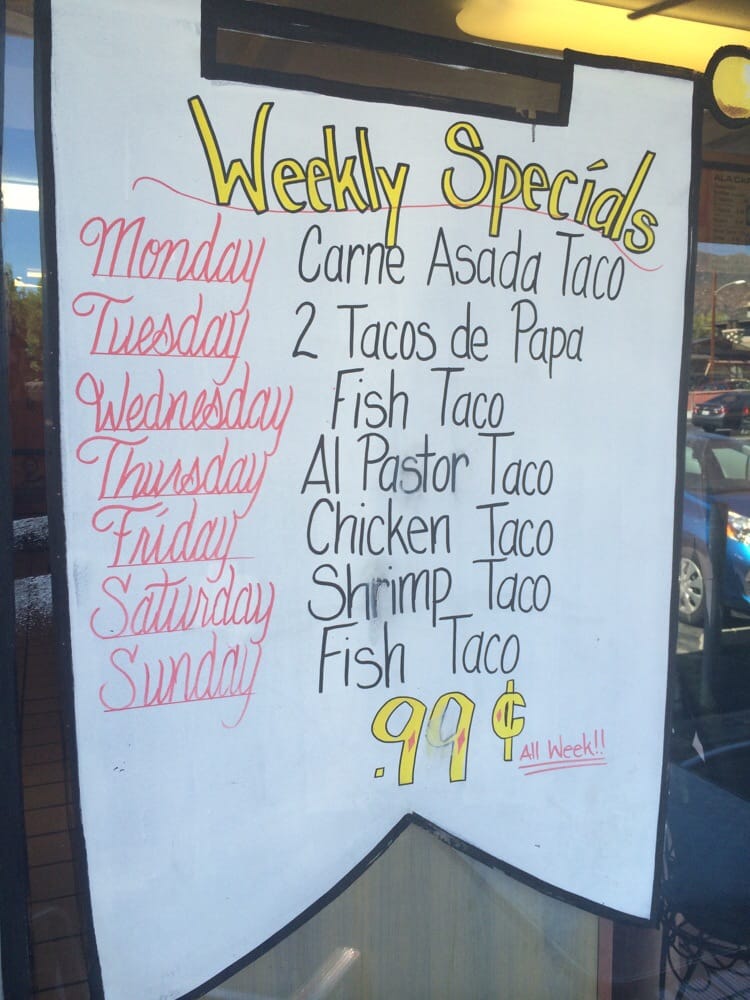 Weekly Specials
Monday Carne Asada Taco
Tuesday 2 Tacos de Papa
Wednesday Fish Taco
Thursday Al Pastor Taco
Friday Chicken Taco
Saturday Shrimp Taco
Sunday Fish Taco
.99¢ All Week!!